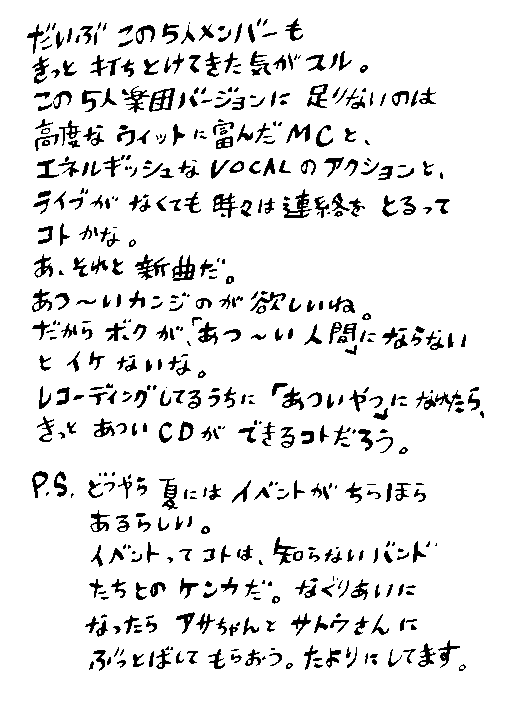 だいぶ この5人メンバーも
きっと 打ちとけてきた気がスル。
この5人楽団バージョンに 足りないのは
高度な ウィットに富んだMCと、
エネルギッシュなVOCALのアクションと、
ライブが なくても 時々は連絡を とるって
コトかな。
あ、それと 新曲だ。
あつ〜いカンジのが欲しいね。
だから ボクが、「あつ〜い 人間」にならない
と イケないな。
レコーディングしてるうちに 「あついやつ」になれたら、
きっと あついCDが できるコトだろう。
P.S. どうやら 夏には イベントが ちらほら
あるらしい。
イベントってコトは、知らないバンド
たちとの ケンカだ。なぐりあいに
なったら アサちゃんと サトウさんに
ぶっとばして もらおう。たよりにしてます。